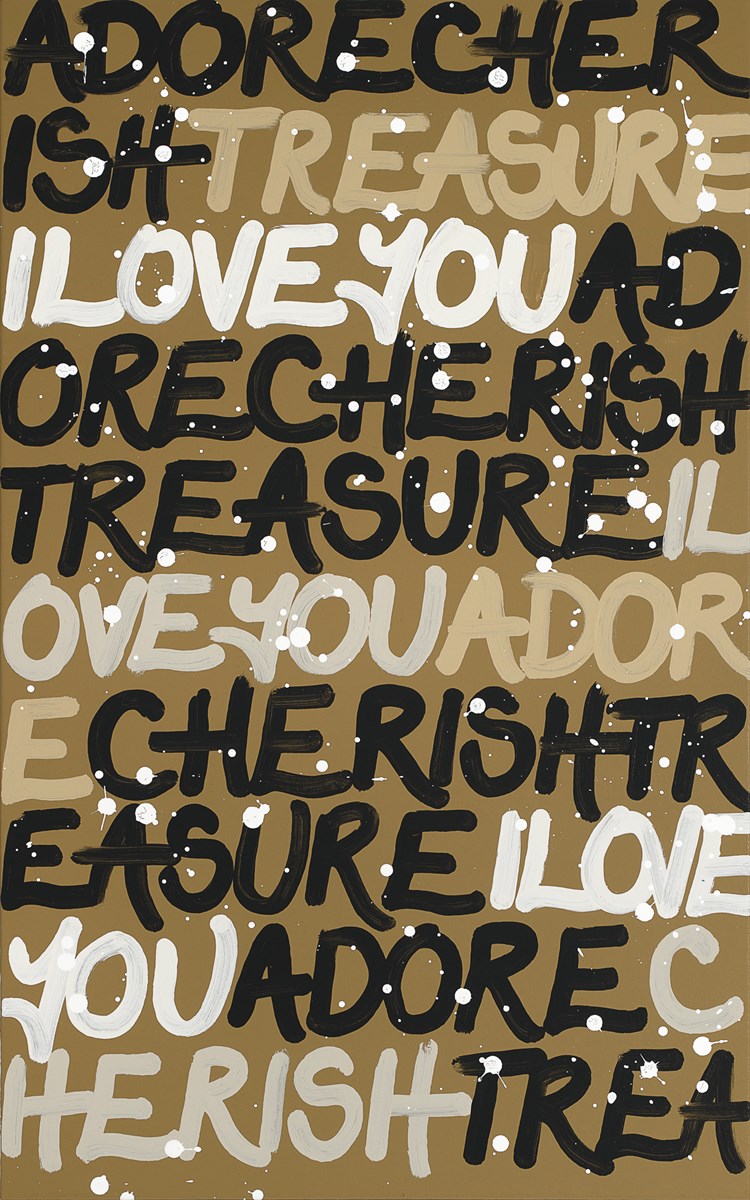 ADORECHER
ISHTREASURE
ILOVEYOUAD
ORECHERISH
TREASUREIL
OVEYOUADOR
ECHERISHTR
EASUREILOVE
YOUADOREC
HERISHTREA